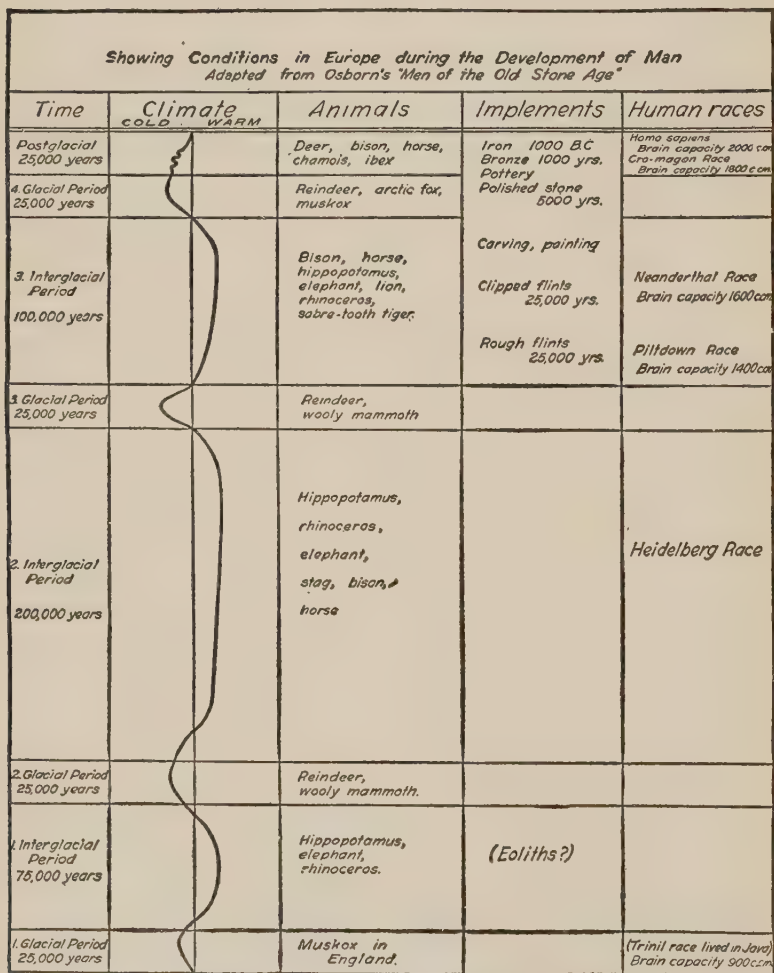 Showing Conditions in Europe during the Development of Man
Adapted from Osborn's "Men of the Old Stone Age"
Time
Climate
COLD WARM
Animals
Implements
Human races
Postglacial
25,000 years
Deer, bison, horse,
chamois, ibex
Iron 1000 B.C
Bronze 1000 yrs.
Pottery
Polished stone
5000 yrs.
Carving, painting
Clipped flints
25,000 yrs.
Rough flints
25,000 yrs.
Homo sapiens
Brain capacity 2000 ccm
Cro-magon Race
Brain capacity 1800 ccm
4. Glacial Period
25,000 years
Reindeer, arctic fox,
muskox
3. Interglacial
Period
100,000 years
Bison, horse,
hippopotamus,
elephant, lion,
rhinoceros,
sabre-tooth tiger.
Neanderthal Race
Brain capacity 1600 ccm
Piltdown Race
Brain capacity 1400 ccm
3. Glacial Period
25,000 years
Reindeer,
wooly mammoth
2. Interglacial
Period
200,000 years
Hippopotamus,
rhinoceros,
elephant,
stag, bison,
horse
Heidelberg Race
2. Glacial Period
25,000 years
Reindeer,
wooly mammoth.
1. Interglacial
Period
75,000 years
Hippopotamus,
elephant,
rhinoceros.
(Eoliths?)
1. Glacial Period
25,000 years
Muskox in
England.
(Trinil race lived in Java)
Brain capacity 900 ccm